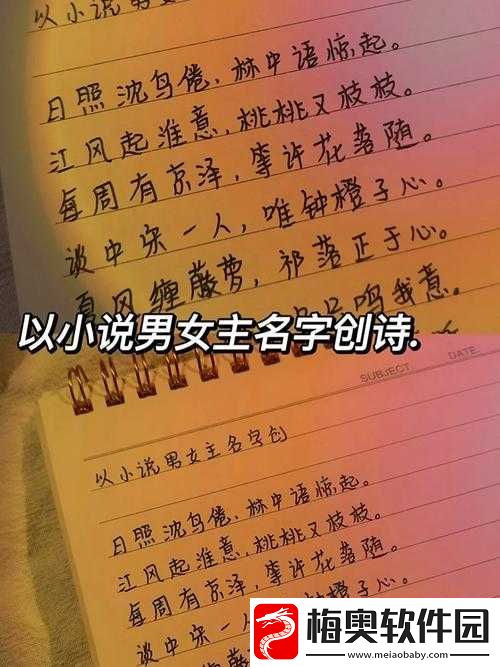 以小说男女
日照沈鸟倦，林中语惊起。
江风起淮意，桃桃又枝枝。
每周有京泽，等许花落随。
谈中宋一人，唯钟橙子心。
夏风缠藤萝，祁落正于心。
鸣我意。
以小说男女主名字创诗.
SUBJECT
DATE
以小说男女主名字创
日照沈鸟倦，林中语惊起。
江风起淮意，桃桃又枝枝。
每周有京泽，等许花落随。
谈中宋一人，唯钟橙子心。
梅奥软件园
www.meiaobaby.com